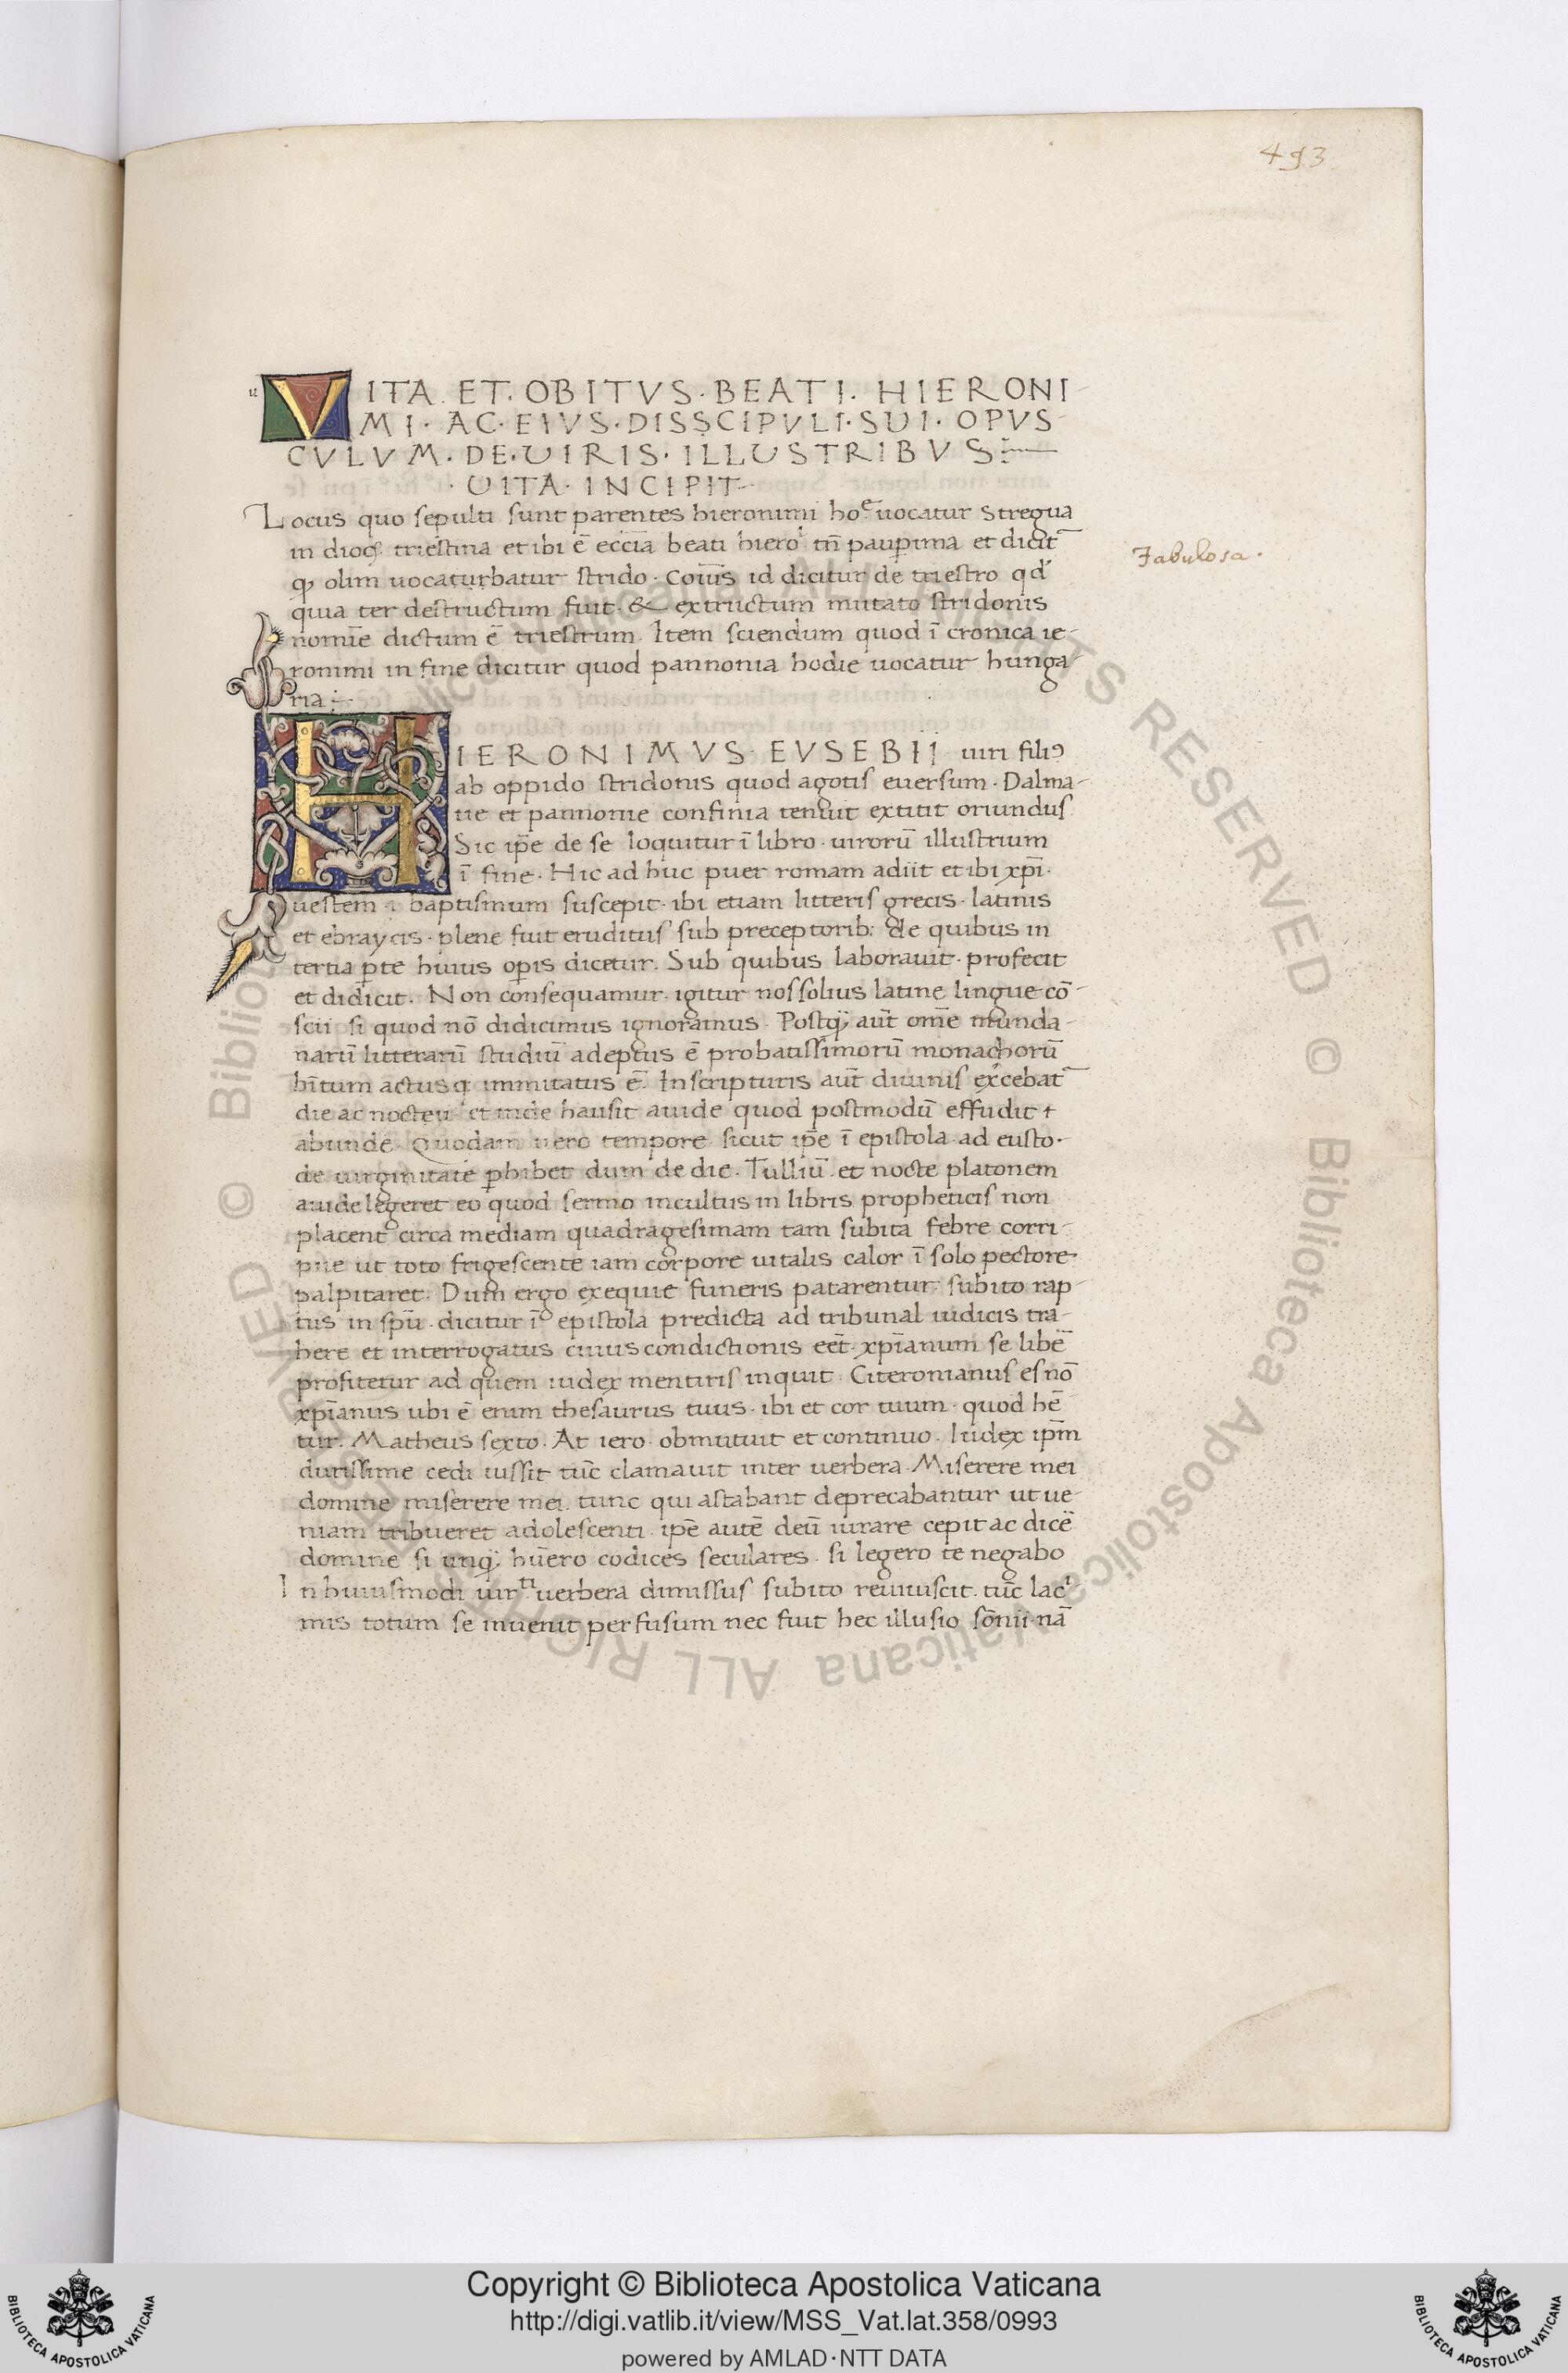 493
VITA. ET. OBITVS. BEATI. HIERONI
MI. AC. EIVS. DISSCIPVLI. SUI. OPVS
CVLVM. DE. UIRIS. ILLUSTRIBVS
UITA. INCIPIT
Locus quo sepulti sunt parentes hieronimi ho.e uocatur stregua
in dioc. triestina et ibi ē ecc̄ia beati hiero tn̄ paup̄ima et dicit̄
Fabulosa.
qꝫ olim uocaturbatur strido. id dicitur de triestro qd
quia ter destructum fuit. & extructum mutato stridonis
nomīe dictum ē triestrum. Item sciendum quod ī cronica ie-
ronimi in fine dicitur quod pannonia hodie uocatur hunga
ria
HIERONIMVS. EVSEBII uiri filiꝯ
ab oppido stridonis quod agotis euersum. Dalma-
tie et pannonie confinia tenuit extitit oriundus
Sic ip̄e de se loquitur ī libro. uirorū illustrium
ī fine. Hic ad huc puer romam adiit et ibi xp̄i.
uestem i baptismum suscepit. ibi etiam litteris grecis. latinis
et ebraycis. plene fuit eruditus sub preceptorib: de quibus in
tertia p̄te huius op̄is dicetur. Sub quibus laborauit. profecit
et didicit. Non consequamur. igitur nos solius latine lingue cō-
scii si quod nō didicimus ignoramus. Postqꝫ aut̄ om̄e munda-
narū litterarū studiū adeptus ē probatissimorū monachorū
hītum actus qꝫ immitatus ē. In scripturis aut̄ diuinis ex̓cebat̄
die ac nocteu et inde hausit auide quod postmodū effudit
abunde. Quodam uero tempore sicut ip̄e ī epistola ad eusto.
de uirginitate p̄hibet dum de die. Tulliū et nocte platonem
auide legeret eo quod sermo incultus in libris propheticis non
placent circa mediam quadragesimam tam subita febre corri
pite ut toto frigescente iam corpore uitalis calor ī solo pectore
palpitaret. Dum ergo exequie funeris patarentur. subito rap
tus in sp̄u. dicitur ī epistola predicta ad tribunal iudicis tra-
here et interrogatus cuius condictionis eēt. xp̄ianum se libē
profitetur ad quem iudex mentiris inquit. Citeronianus es nō
xp̄ianus ubi ē enim thesaurus tuus. ibi et cor tuum. quod hē
tur. Matheus sexto. At iero. obmutuit et continuo. Iudex ip̄m
durissime cedi iussit tūc clamauit inter uerbera. Miserere mei
domine miserere mei. tunc qui astabant deprecabantur ut ue-
niam tribueret adolescenti. ip̄e autē deū iurare cepit ac dicē
domine si unqꝫ hūero codices seculares. si legero te negabo
In huiusmodi uerbera dimissus subito reuiuiscit. tūc lac
mis totum se inuenit perfusum nec fuit hec illusio sōnii. nā
© Biblioteca Apostolica Vaticana ALL RIGHTS RESERVED © Biblioteca Apostolica Vaticana ALL RIGHTS RESERVED
Copyright © Biblioteca Apostolica Vaticana
http://digi.vatlib.it/view/MSS_Vat.lat.358/0993
powered by AMLAD·NTT DATA
BIBLIOTECA APOSTOLICA VATICANA
BIBLIOTECA APOSTOLICA VATICANA